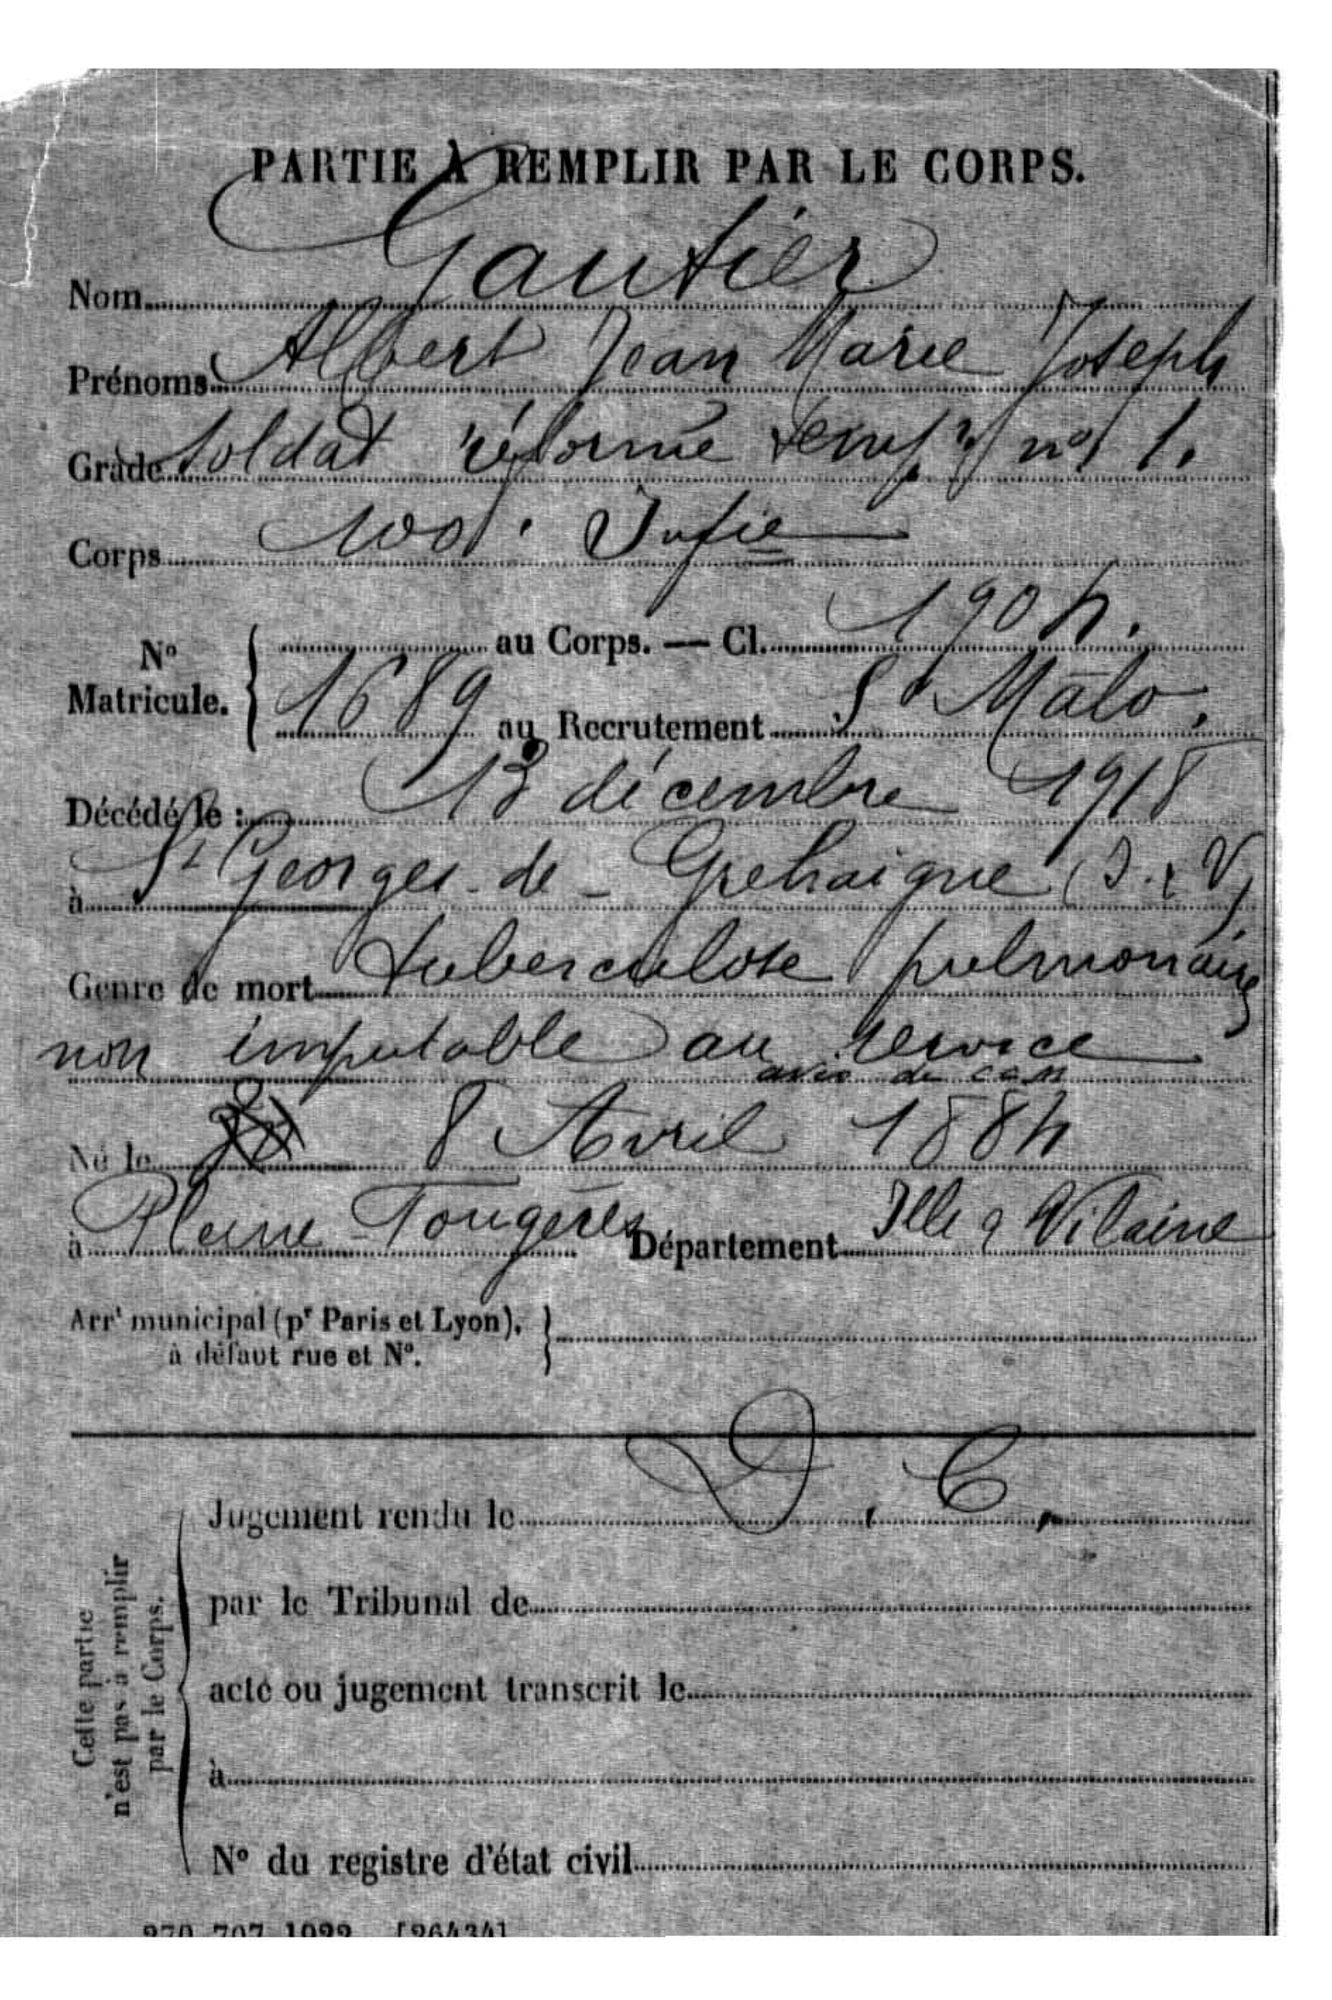 PARTIE À REMPLIR PAR LE CORPS.
Nom Gautier
Prénoms Albert Jean Marie Joseph
Grade soldat réformé temp re no 1.
Corps 100e. Infie
No Matricule. { au Corps. — Cl. 1904.
1689 au Recrutement St Malo.
Décédé le : 13 décembre 1918
à St Georges-de-Grehaigne (I. & V)
Genre de mort tuberculose pulmonaire
non imputable au service
avis de CCM
Né le 8 Avril 1884
à Pleine-Fougères Département Ille & Vilaine
Arrt municipal (pr Paris et Lyon), }
à défaut rue et No.
D. C.
Cette partie n'est pas à remplir par le Corps.
Jugement rendu le
par le Tribunal de
acte ou jugement transcrit le
à
No du registre d'état civil
270-707-1922. [26434]